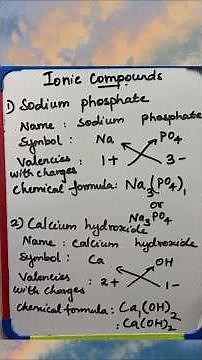 Ionic Compounds
1) Sodium phosphate
Name : Sodium phosphate
Symbol : Na PO4
Valencies with charges : 1+ 3-
Chemical formula : Na3(PO4)1
or
Na3PO4
2) Calcium hydroxide
Name : Calcium hydroxide
Symbol : Ca OH
Valencies with charges : 2+ 1-
chemical formula : Ca1(OH)2
: Ca(OH)2